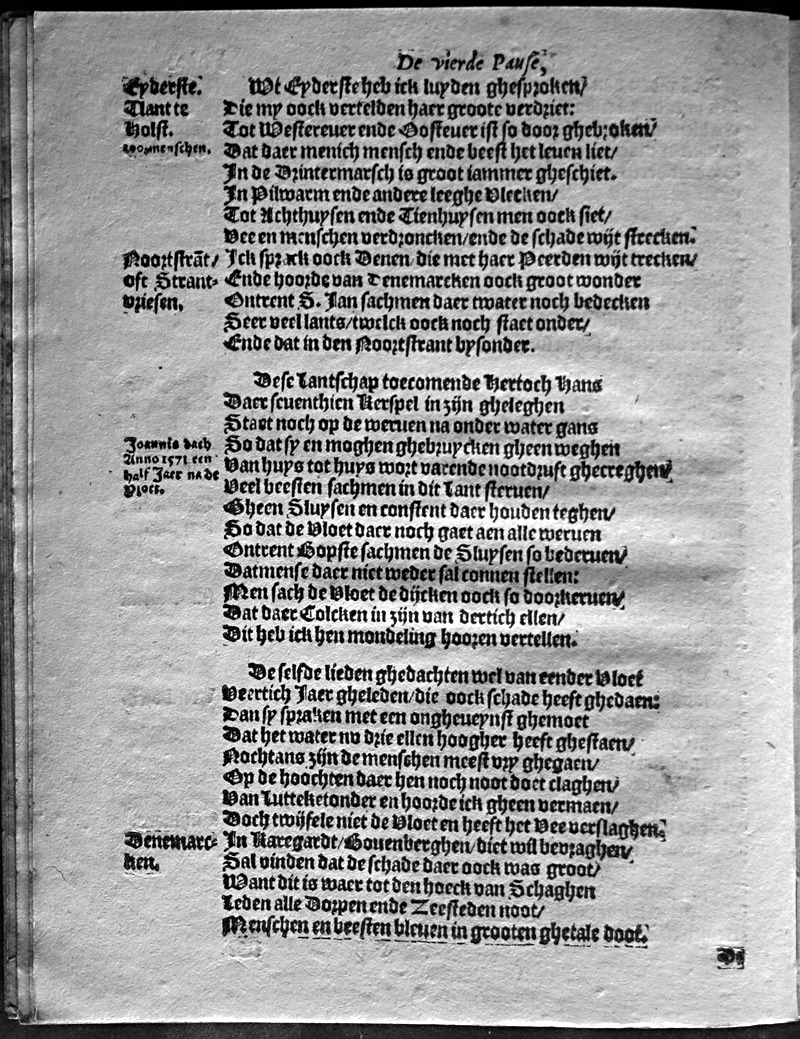 De vierde Pause,
Eyderste.
Wt Eyderste heb ick luyden ghesproken/
Tlant te
Die my oock vertelden haer groote verdriet:
Holst.
Tot Westereuer ende Oosteuer ist so door ghebroken/
Dat daer menich mensch ende beest het leuen liet/
In de Drintermarsch is groot iammer gheschiet.
In Pilwarm ende andere leeghe Vlecken/
Tot Achthuysen ende Tienhuysen men oock siet/
Vee en menschen verdroncken/ende de schade wijt strecken.
Noortstrāt/
Ick sprack oock Denen/die met haer Peerden wijt trecken/
oft Strant-
Ende hoorde van Denemarcken oock groot wonder
vriesen.
Ontrent S. Jan sachmen daer twater noch bedecken
Seer veel lants/twelck oock noch staet onder/
Ende dat in den Noortstrant bysonder.
Dese Lantschap toecomende Hertoch Hans
Daer seuenthien Kerspel in zijn gheleghen
Staet noch op de weruen na onder water gans
Joannis dach
So dat sy en moghen ghebruycken gheen weghen
Anno 1571 een
Van huys tot huys wort varende nootdruft ghecreghen/
half Jaer na de
Vloet.
Veel beesten sachmen in dit Lant steruen/
Gheen Sluysen en constent daer houden teghen/
So dat de Vloet daer noch gaet aen alle weruen
Ontrent Gopste sachmen de Sluysen so bederuen/
Datmense daer niet weder sal connen stellen:
Men sach de Vloet de dijcken oock so doorkeruen/
Dat daer Colcken in zijn van dertich ellen/
Dit heb ick hen mondeling hooren vertellen.
De selfde lieden ghedachten wel van eender Vloet
Veertich Jaer gheleden/die oock schade heeft ghedaen:
Dan sy spraken met een ongheueynst ghemoet
Dat het water nu drie ellen hoogher heeft ghestaen/
Nochtans zijn de menschen meest vry ghegaen/
Op de hoochten daer hen noch noot doet claghen/
Van Lutteketonder en hoorde ick gheen vermaen/
Doch twijfele niet de Vloet en heeft het Vee verslaghen.
Denemarc-
In Karegardt/Gouenberghen/diet wil bevraghen/
ken.
Sal vinden dat de schade daer oock was groot/
Want dit is waer tot den hoeck van Schaghen
Leden alle Dorpen ende Zeesteden noot/
Menschen en beesten bleuen in grooten ghetale doot.